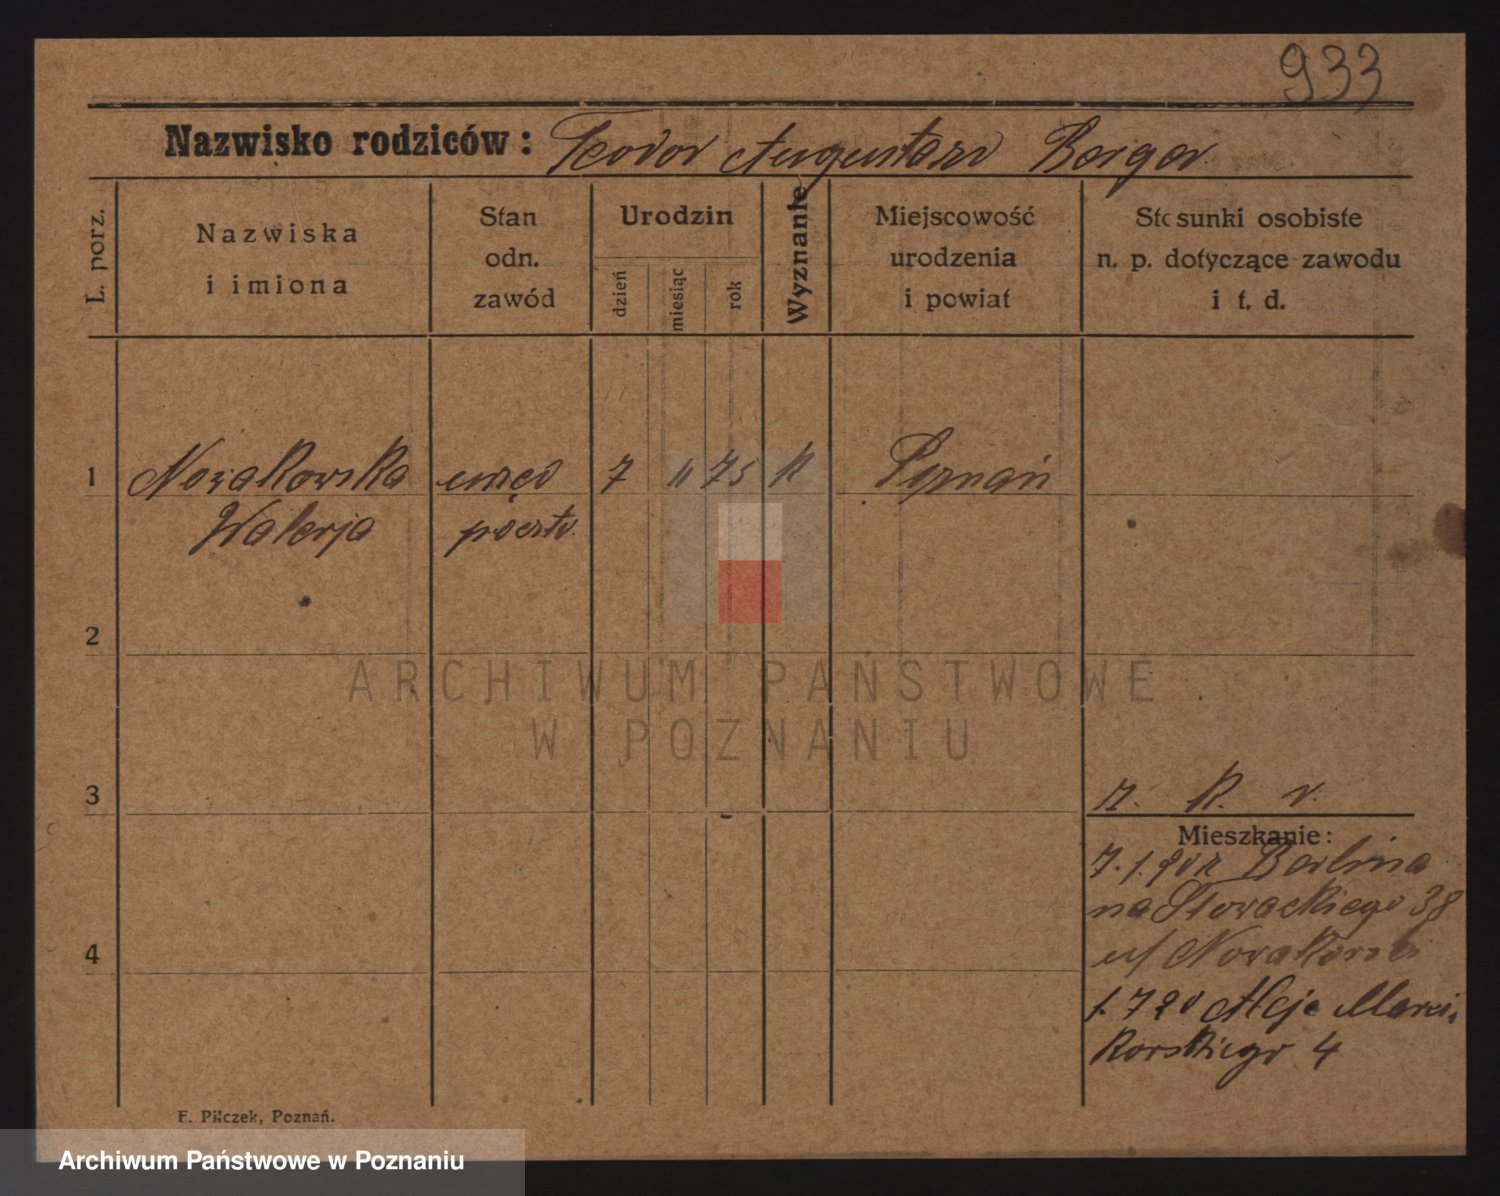 933
Nazwisko rodziców: Teodor Augustaw Berger
L. porz.
Nazwiska
i imiona
Stan
odn.
zawód
Urodzin
dzień
miesiąc
rok
Wyznanie
Miejscowość
urodzenia
i powiat
Stosunki osobiste
n. p. dotyczące zawodu
i t. d.
1 Nowakowska urzęd 7 11 75 k Poznań
Walerja poczto.
2
3
r. k. v.
Mieszkanie:
7.1.20 z Berlina
na Słowackiego 38
u/ Nowakowsk
1.7 20 Aleje Marcin
kowskiego 4
4
F. Pilczek, Poznań.
ARCHIWUM PAŃSTWOWE
W POZNANIU
Archiwum Państwowe w Poznaniu